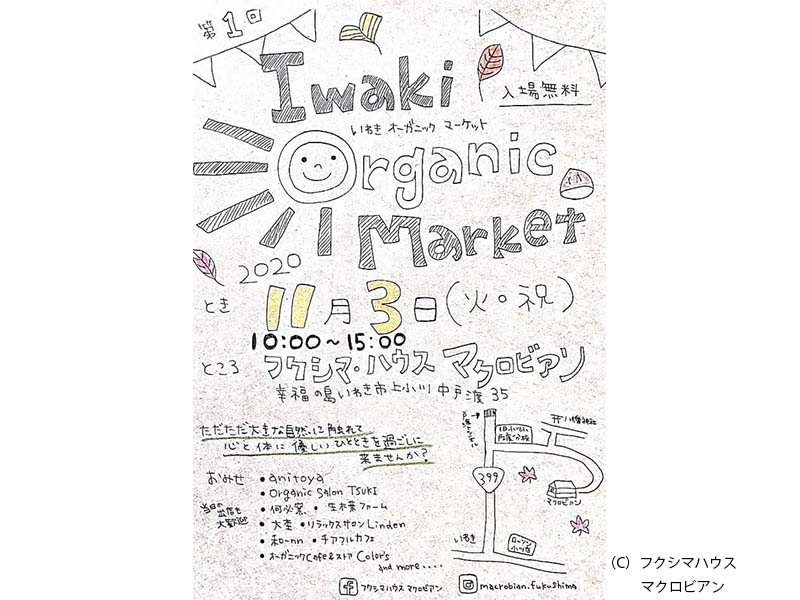 第1回
Iwaki
入場無料
いわき オーガニック マーケット
Organic
Market
2020
とき 11月3日(火・祝)
10:00〜15:00
ところ フクシマ・ハウス マクロビアン
幸福の島いわき市上小川中戸渡35
ただただ大きな自然に触れて
心と体に優しいひとときを過ごしに
来ませんか?
おみせ
当日の
出店も
大歓迎
• anitoya
• Organic Salon TSUKI
• 何必窯 • 生木葉ファーム
• 大杢 • リラックスサロン Linden
• 和-nn • チアフルカフェ
• オーガニックCafe&ストア Color's
and more....
八幡神社
399
マクロビアン
いわき
ローソン
フクシマハウス マクロビアン
macrobian.fukushima
(C) フクシマハウス
マクロビアン